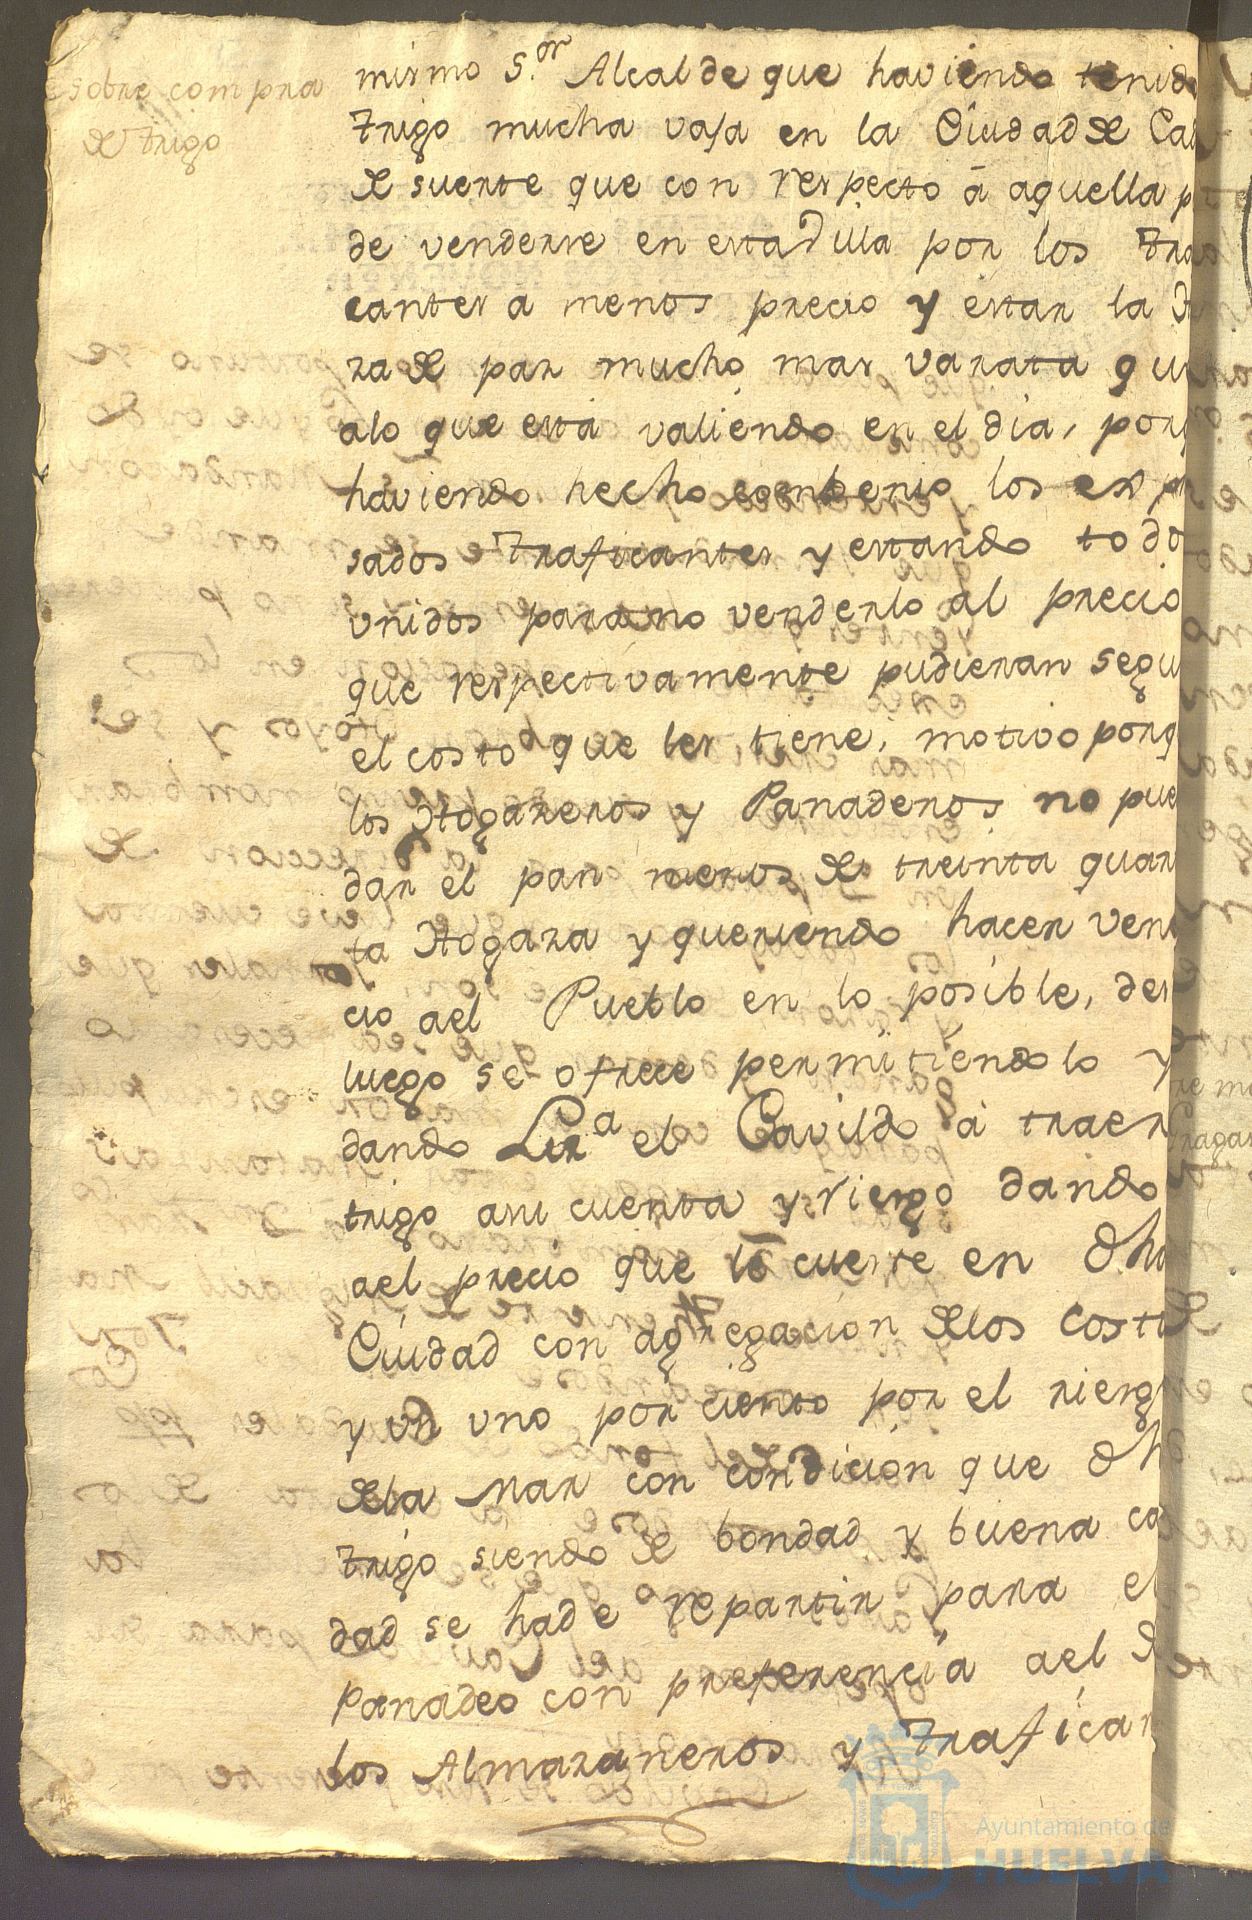 sobre compra
de trigo
mismo S.or Alcalde que haviendo tenido
trigo mucha vaja en la Ciudad de
de suerte que con respecto á aquella
de venderse en esta Villa por los
cantes a menos precio y estar la
za de pan mucho mas varata
alo que está valiendo en el dia,
haviendo hecho combenio los
sados traficantes y estando todo
unidos para no venderlo al precio
que respectivamente pudieran segu
el costo que les tiene, motivo porq
los Hogazeros y Panaderos no pue
dar el pan menos de treinta quar
ta Hogaza y queriendo hacer
cio ael Pueblo en lo posible, des
luego se ofrece permitiendolo y
dando Liz.a el Cavildo á traer
trigo asu cuenta y riesgo dando
ael precio que le cueste en dha
Ciudad con agregacion delos costo
y un uno por ciento por el riesg
dela Mar con condicion que dh
trigo siendo de bondad y buena ca
dad se hade repartir para el
Panadeo con preferencia ael d
los Almazaneros y trafican
Ayuntamiento de
HUELVA